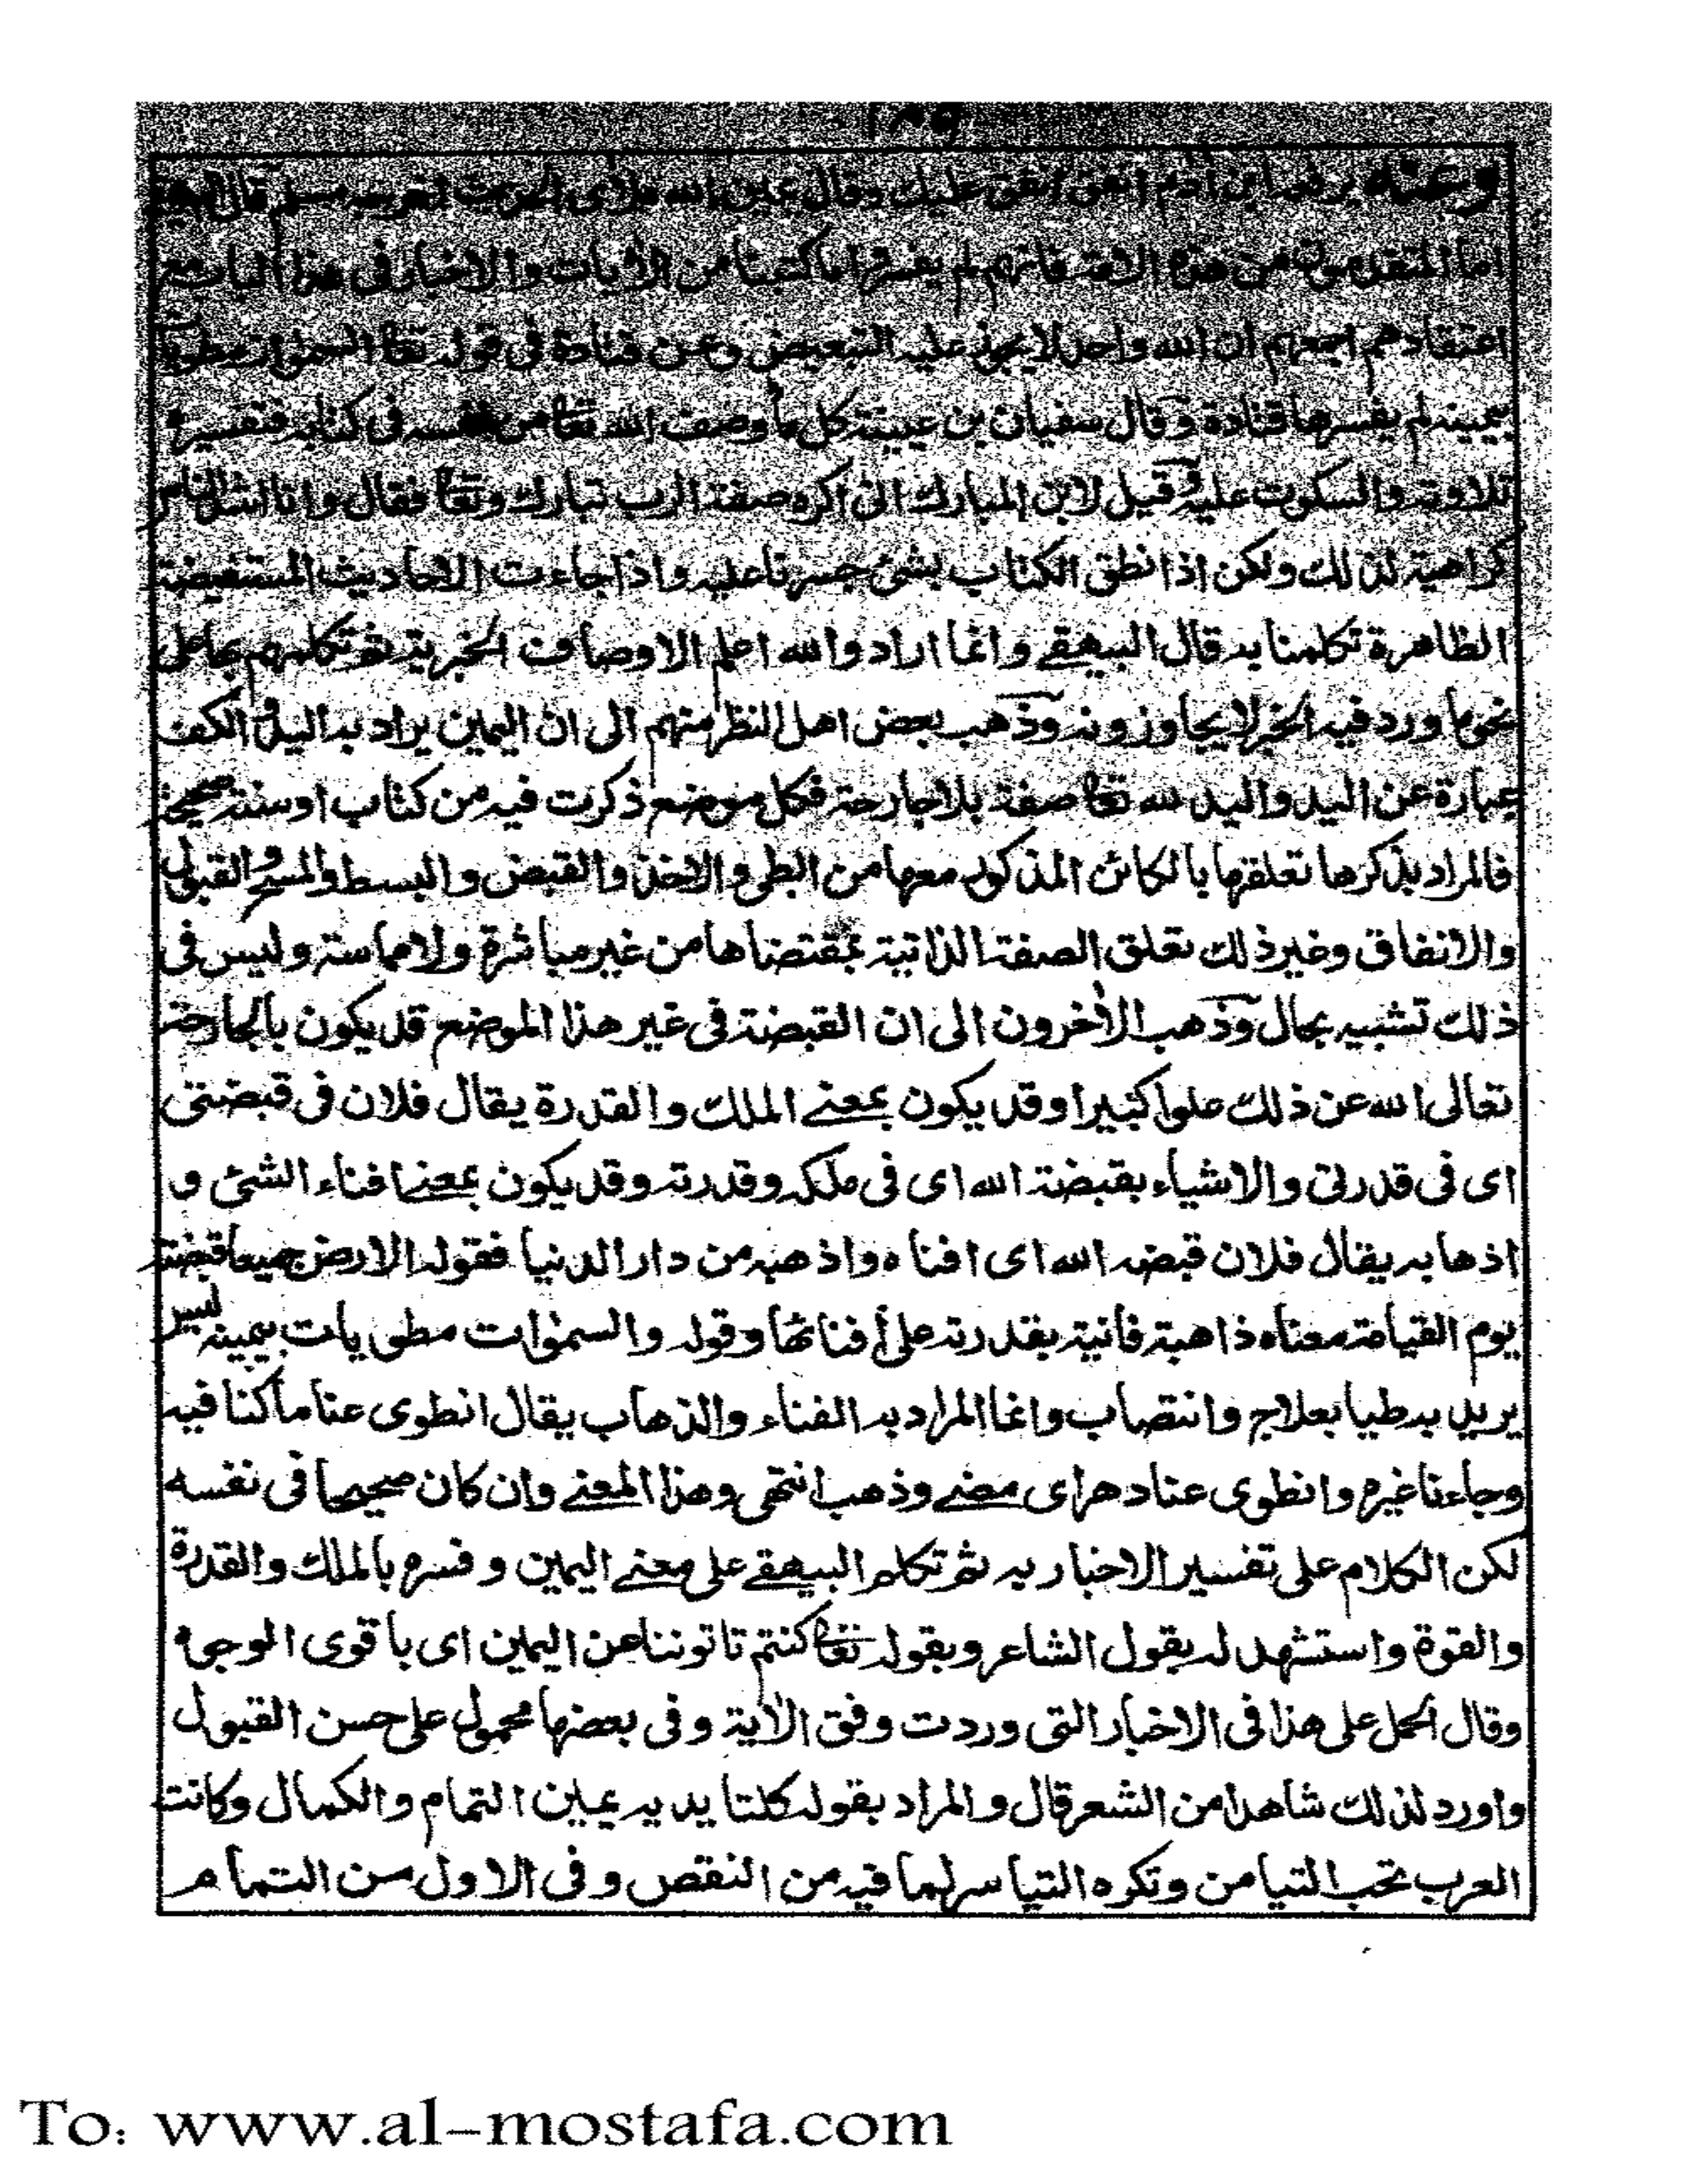 وعنه يرفعه ابن ادم انفق انفق عليك وقال يمين الله ملأى الحديث اخرجه مسلم قال
اما المتقدمون من هذه الامة فانهم لم يفسروا ما كتبنا من الأيات والاخبار فى هذا الباب مع
اعتقادهم اجمعهم ان الله واحد لا يجوز عليه التبعيض وعن قتادة فى قوله تعا السموات مطويات
بيمينه لم يفسرها قتادة وقال سفيان بن عيينة كل ما وصف الله تعا من نفسه فى كتابه فتفسيره
تلاوته والسكوت عليه وقيل لابن المبارك انى اكره صفة الرب تبارك وتعا فقال وانا اشد الناس
كراهية لذلك ولكن اذا نطق الكتاب بشئ جسرنا عليه واذا جاءت الاحاديث المستفيضة
الظاهرة تكلمنا به قال البيهقے وانما اراد والله اعلم الاوصاف الخبرية ثم تكلمهم بها على
نحو ما ورد فيه الخبر لا يجاوزونه وذهب بعض اهل النظر منهم الى ان اليمين يراد به اليد والكف
عبارة عن اليد واليد لله تعا صفة بلا جارحة فكل موضع ذكرت فيه من كتاب او سنة صحيحة
فالمراد بذكرها تعلقها بالكائن المذكور معها من الطى والاخذ والقبض والبسط والمسح والقبول
والانفاق وغير ذلك تعلق الصفة الذاتية بمقتضاها من غير مباشرة ولا مماسة وليس فى
ذلك تشبيه بحال وذهب الأخرون الى ان القبضة فى غير هذا الموضع قد يكون بالجارحة
تعالى الله عن ذلك علوا كبيرا وقد يكون بمعنے الملك والقدرة يقال فلان فى قبضتى
اى فى قدرتى والاشياء بقبضة الله اى فى ملكه وقدرته وقد يكون بمعنے افناء الشئ و
اذهابه يقال فلان قبضه الله اى افناه واذهبه من دار الدنيا فقوله الارض جميعا قبضته
يوم القيامة معناه ذاهبة فانية بقدرته على أفنائها وقوله والسموات مطويات بيمينه ليس
يريد به طيا بعلاج وانتصاب وانما المراد به الفناء والذهاب يقال انطوى عنا ما كنا فيه
وجاءنا غيره وانطوى عنا دهر اى مضے وذهب انتهى وهذا المعنے وان كان صحيحا فى نفسه
لكن الكلام على تفسير الاخبار به ثم تكلم البيهقے على معنے اليمين وفسره بالملك والقدرة
والقوة واستشهد له بقول الشاعر وبقوله تعا كنتم تاتوننا عن اليمين اى باقوى الوجوه
وقال الحمل على هذا فى الاخبار التى وردت وفق الأية وفى بعضها محمول على حسن القبول
واورد لذلك شاهدا من الشعر قال والمراد بقوله كلتا يديه يمين التمام والكمال وكانت
العرب تحب التيامن وتكره التياسر لما فيه من النقص وفى الاول من التمام
To: www.al-mostafa.com